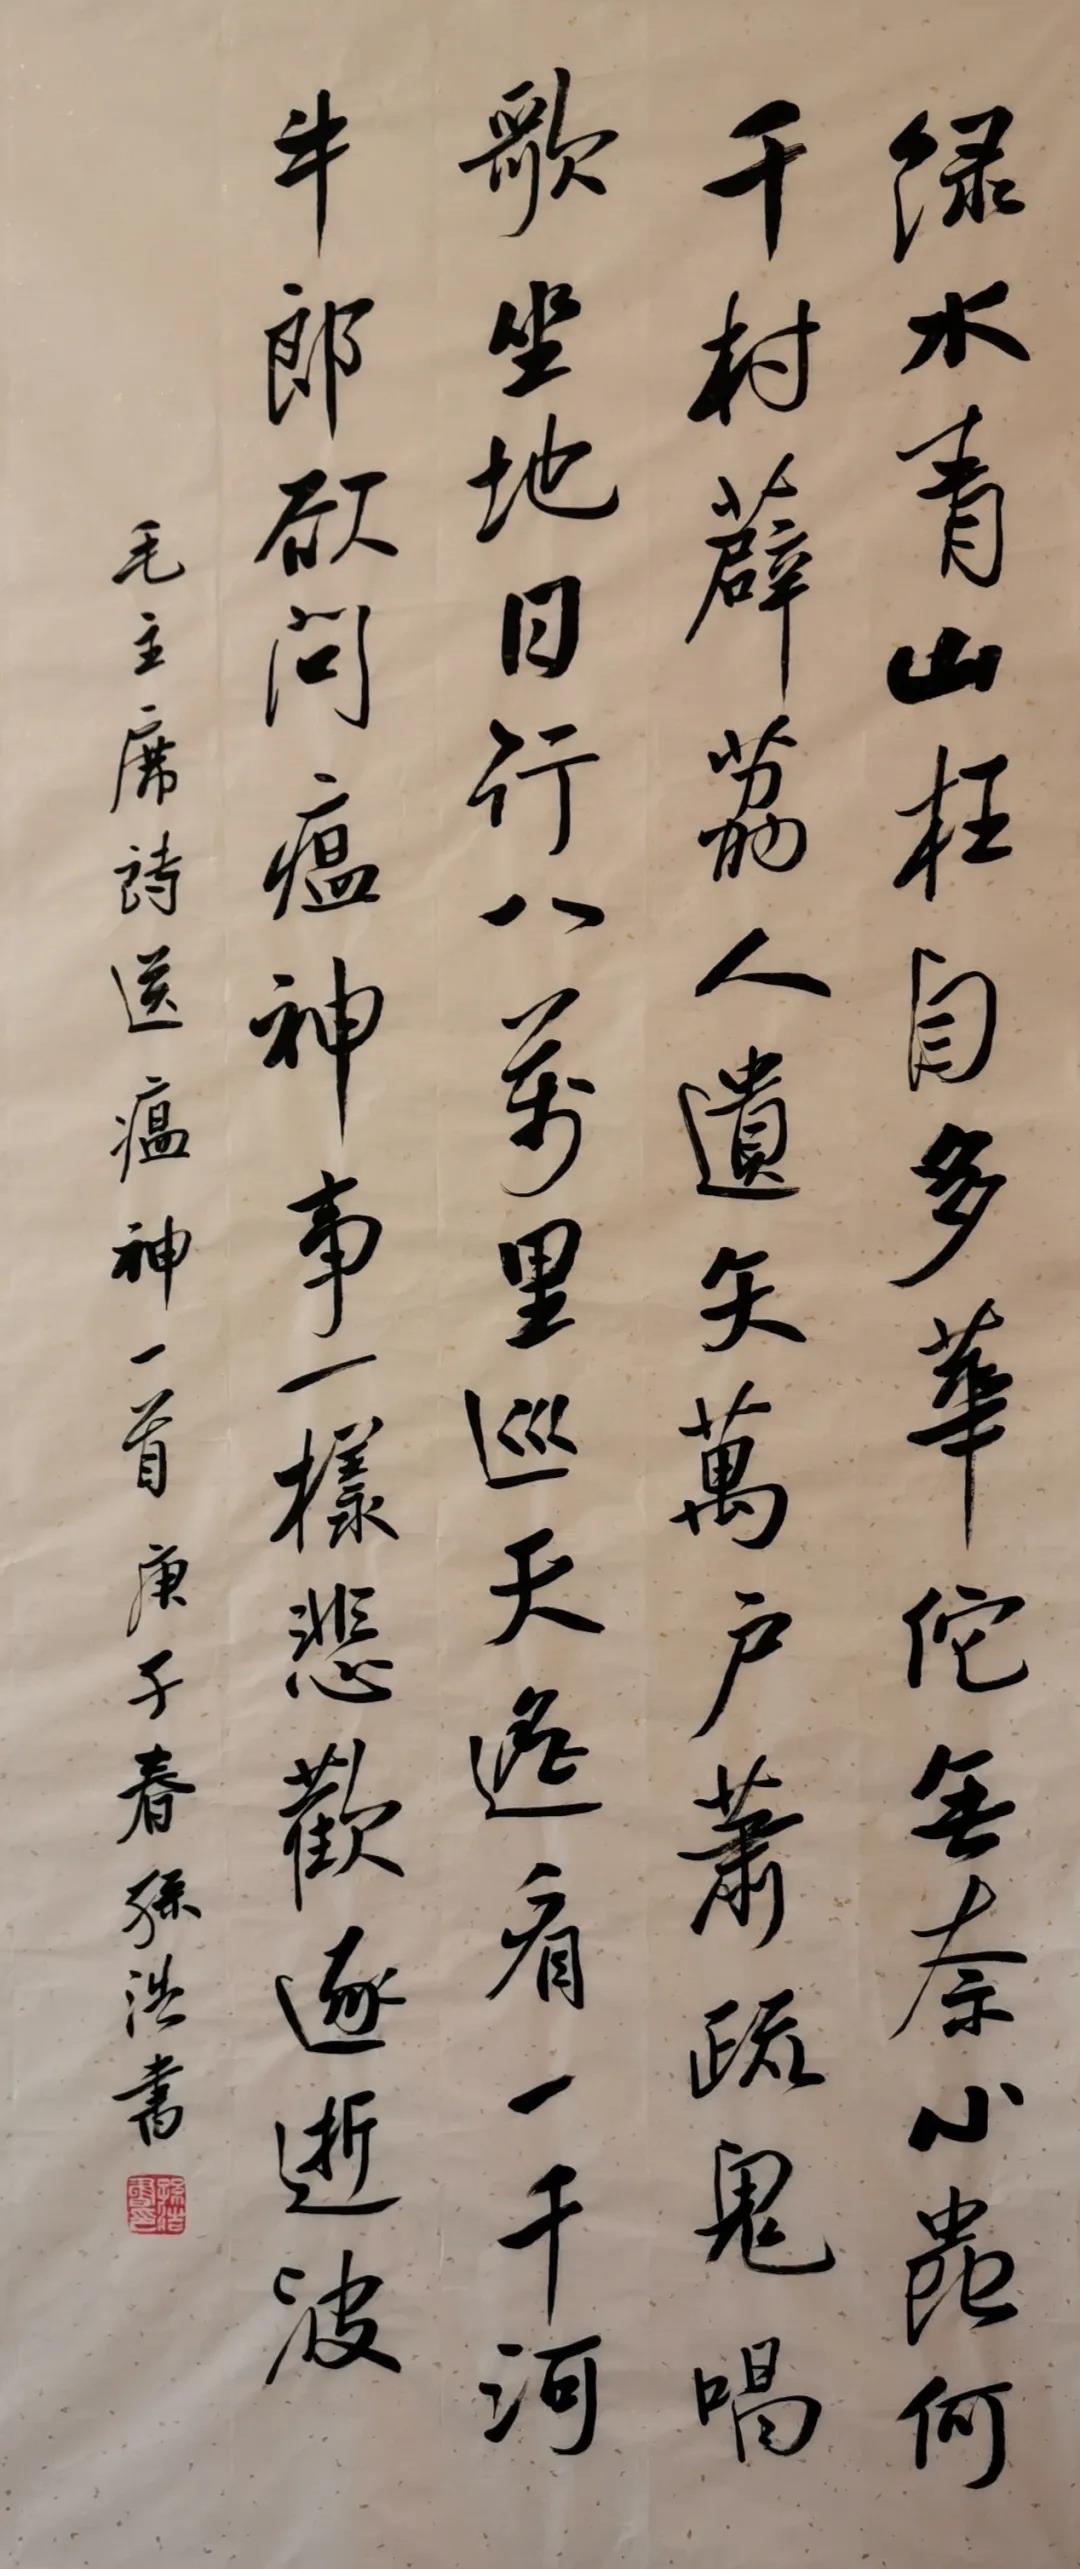 绿水青山枉自多華佗無奈小蟲何
千村薜荔人遺矢萬户蕭疏鬼唱
歌坐地日行八萬里巡天遙看一千河
牛郎欲問瘟神事一樣悲歡逐逝波
毛主席詩送瘟神一首庚子春孫浩書